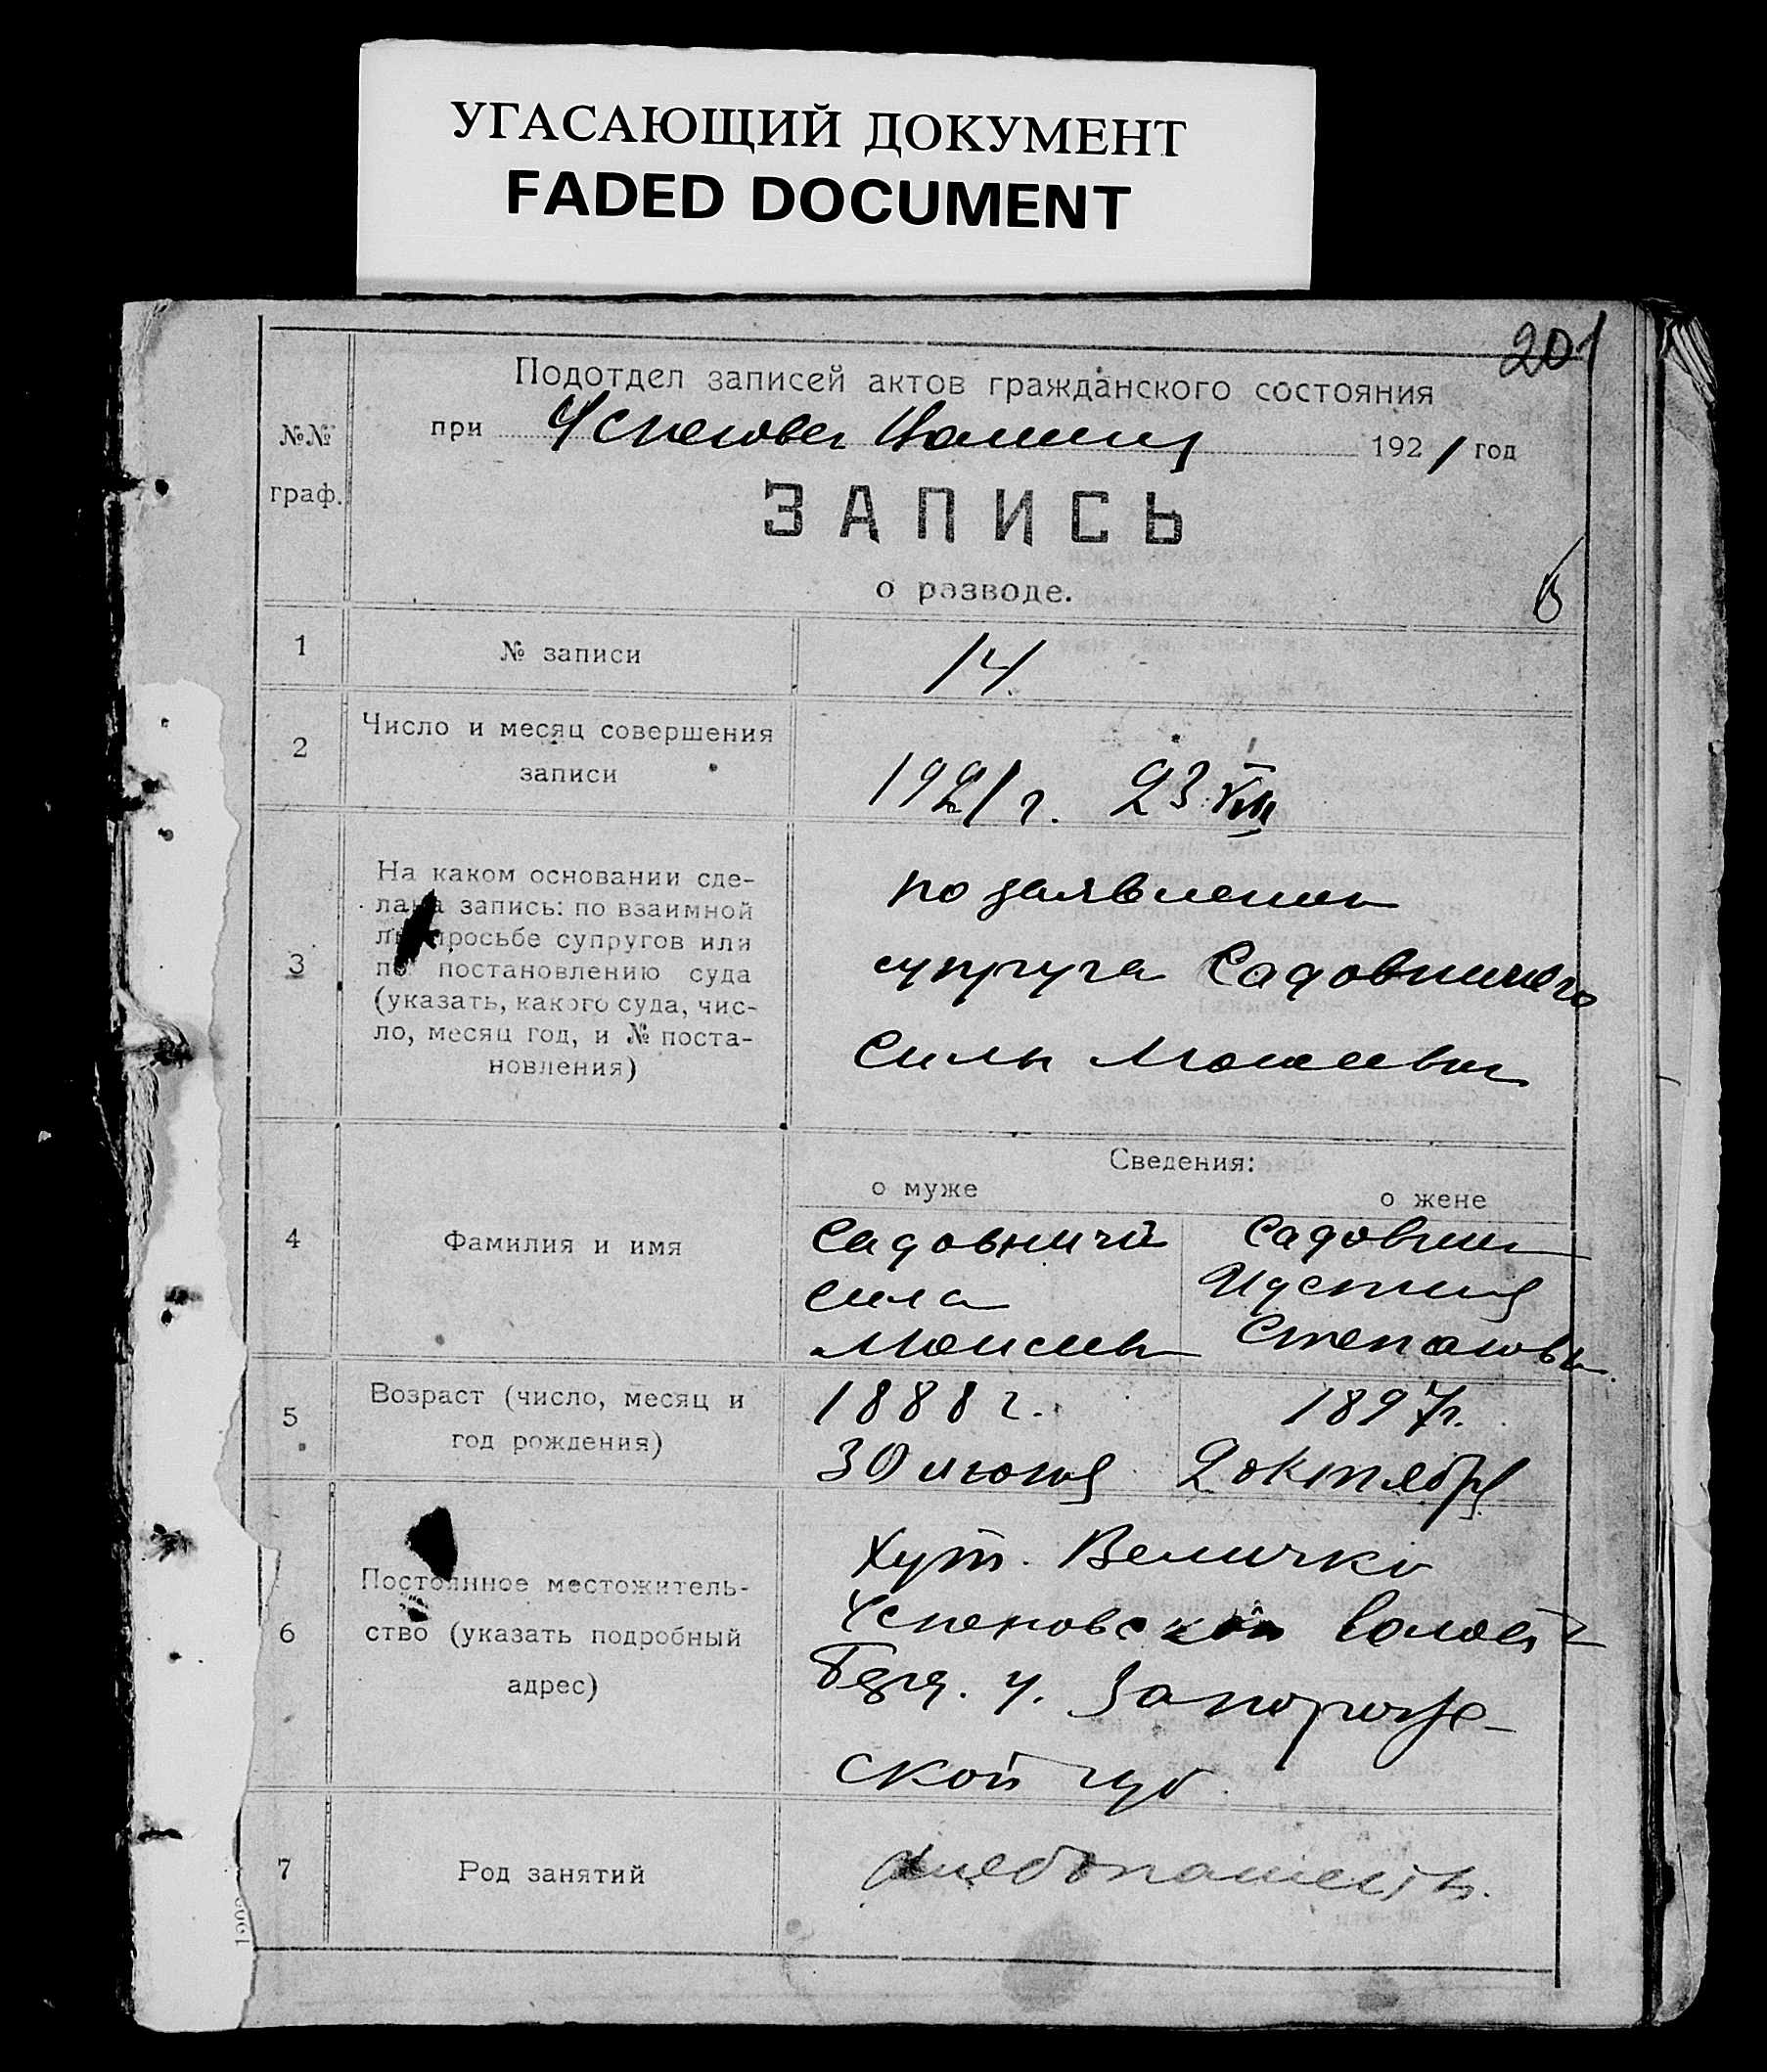 УГАСАЮЩИЙ ДОКУМЕНТ
FADED DOCUMENT
201
Подотдел записей актов гражданского состояния
№№ граф.
при 1921 год
ЗАПИСЬ
о разводе.
6
1 № записи 14
2 Число и месяц совершения
записи 1921 г. 23 VIII
3 На каком основании сде-
лана запись: по взаимной
просьбе супругов или
по постановлению суда
(указать, какого суда, чис-
ло, месяц год, и № поста-
новления)
по заявлению
супруга Садовничего
Силы
Сведения:
о муже о жене
4 Фамилия и имя
Садовничий
Сила
Моисеев
Садовнич
Иустия
Степанова
5 Возраст (число, месяц и
год рождения)
1888 г. 1897 г.
30 июня 2 октября
6 Постоянное местожитель-
ство (указать подробный
адрес)
Хут. Величко
Успеновской волост
Бердя. у. Запорож-
ской губ.
7 Род занятий хлебопашеств.